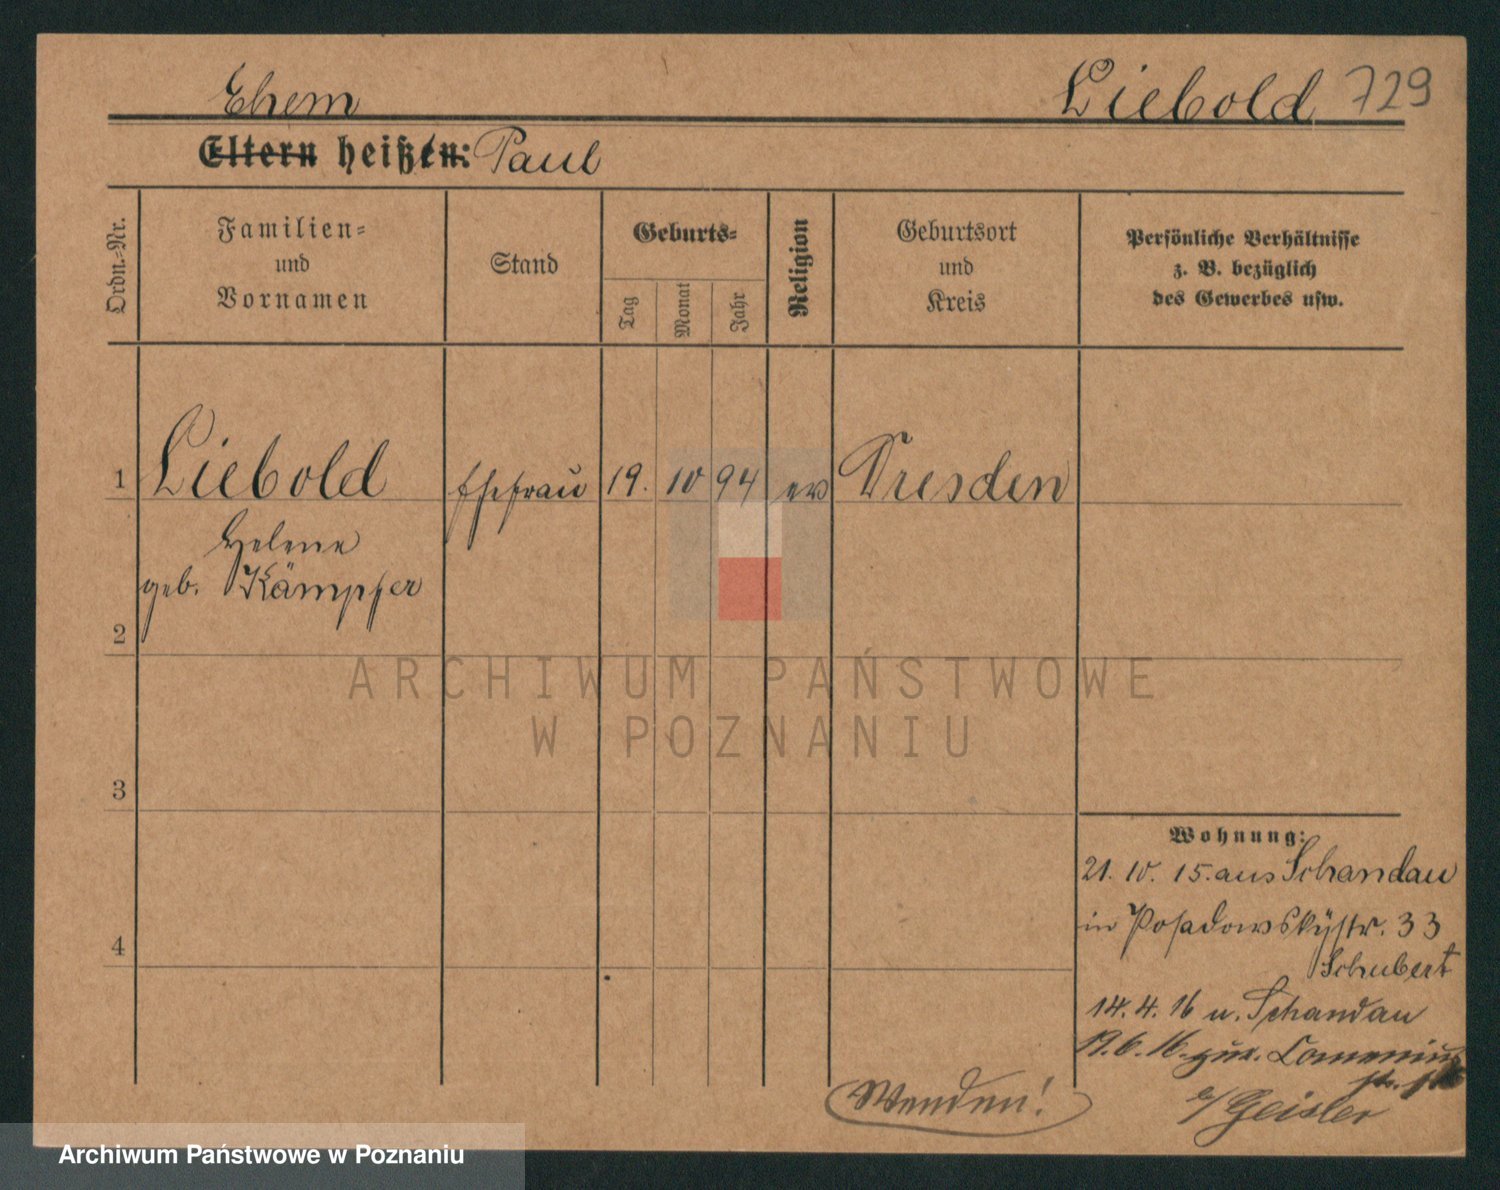 Ehem
Liebold 729
Eltern heißen: Paul
Ordn.-Nr.
Familien-
und
Vornamen
Stand
Geburts-
Tag
Monat
Jahr
Religion
Geburtsort
und
Kreis
Persönliche Verhältnisse
z. B. bezüglich
des Gewerbes usw.
1 Liebold Ehefrau 19. 10 94 ev Dresden
Helene
geb. Kämpfer
2
ARCHIWUM PAŃSTWOWE
W POZNANIU
3
Wohnung:
21. 10. 15. aus Schandau
in Posadowskÿstr. 33
Schubert
4
14. 4. 16 n. Schandau
19. 6. 16. zur. Comenius
str.
b/Geisler
Wenden!
Archiwum Państwowe w Poznaniu